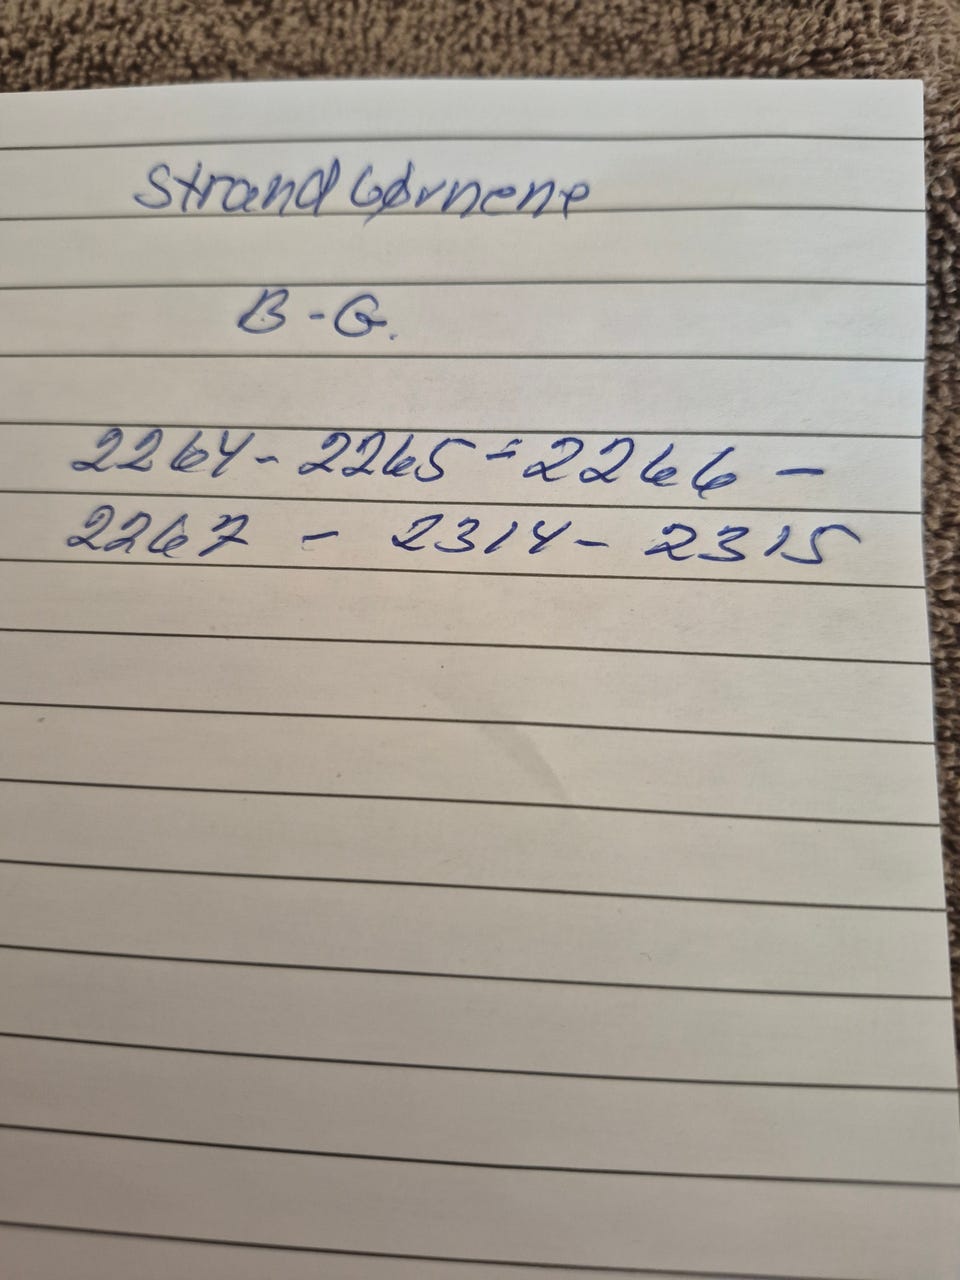 Strandbørnene
B-G.
2264-2265-2266-
2267 - 2314-2315